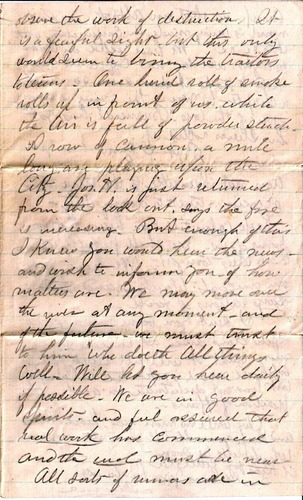 the work of destruction. It
is a fearful sight. but this only
would seem to bring the traitors
to terms. One lurid roll of smoke
rolls up in front of us. while
the air is full of powder stench
A row of cannon. a mile
long are playing upon the
City. Jos. W. is just returned
from the look out. says the fire
is increasing. But enough of this
I knew you would hear the news
and wish to inform you of how
matters are. We may move over
the river at any moment. and
of the future. we must trust
to him who doeth All things
Well. Will let you hear daily
if possible. We are in good
spirits. and feel assured that
real work has commenced
and the end must be near
All sorts of rumors are in